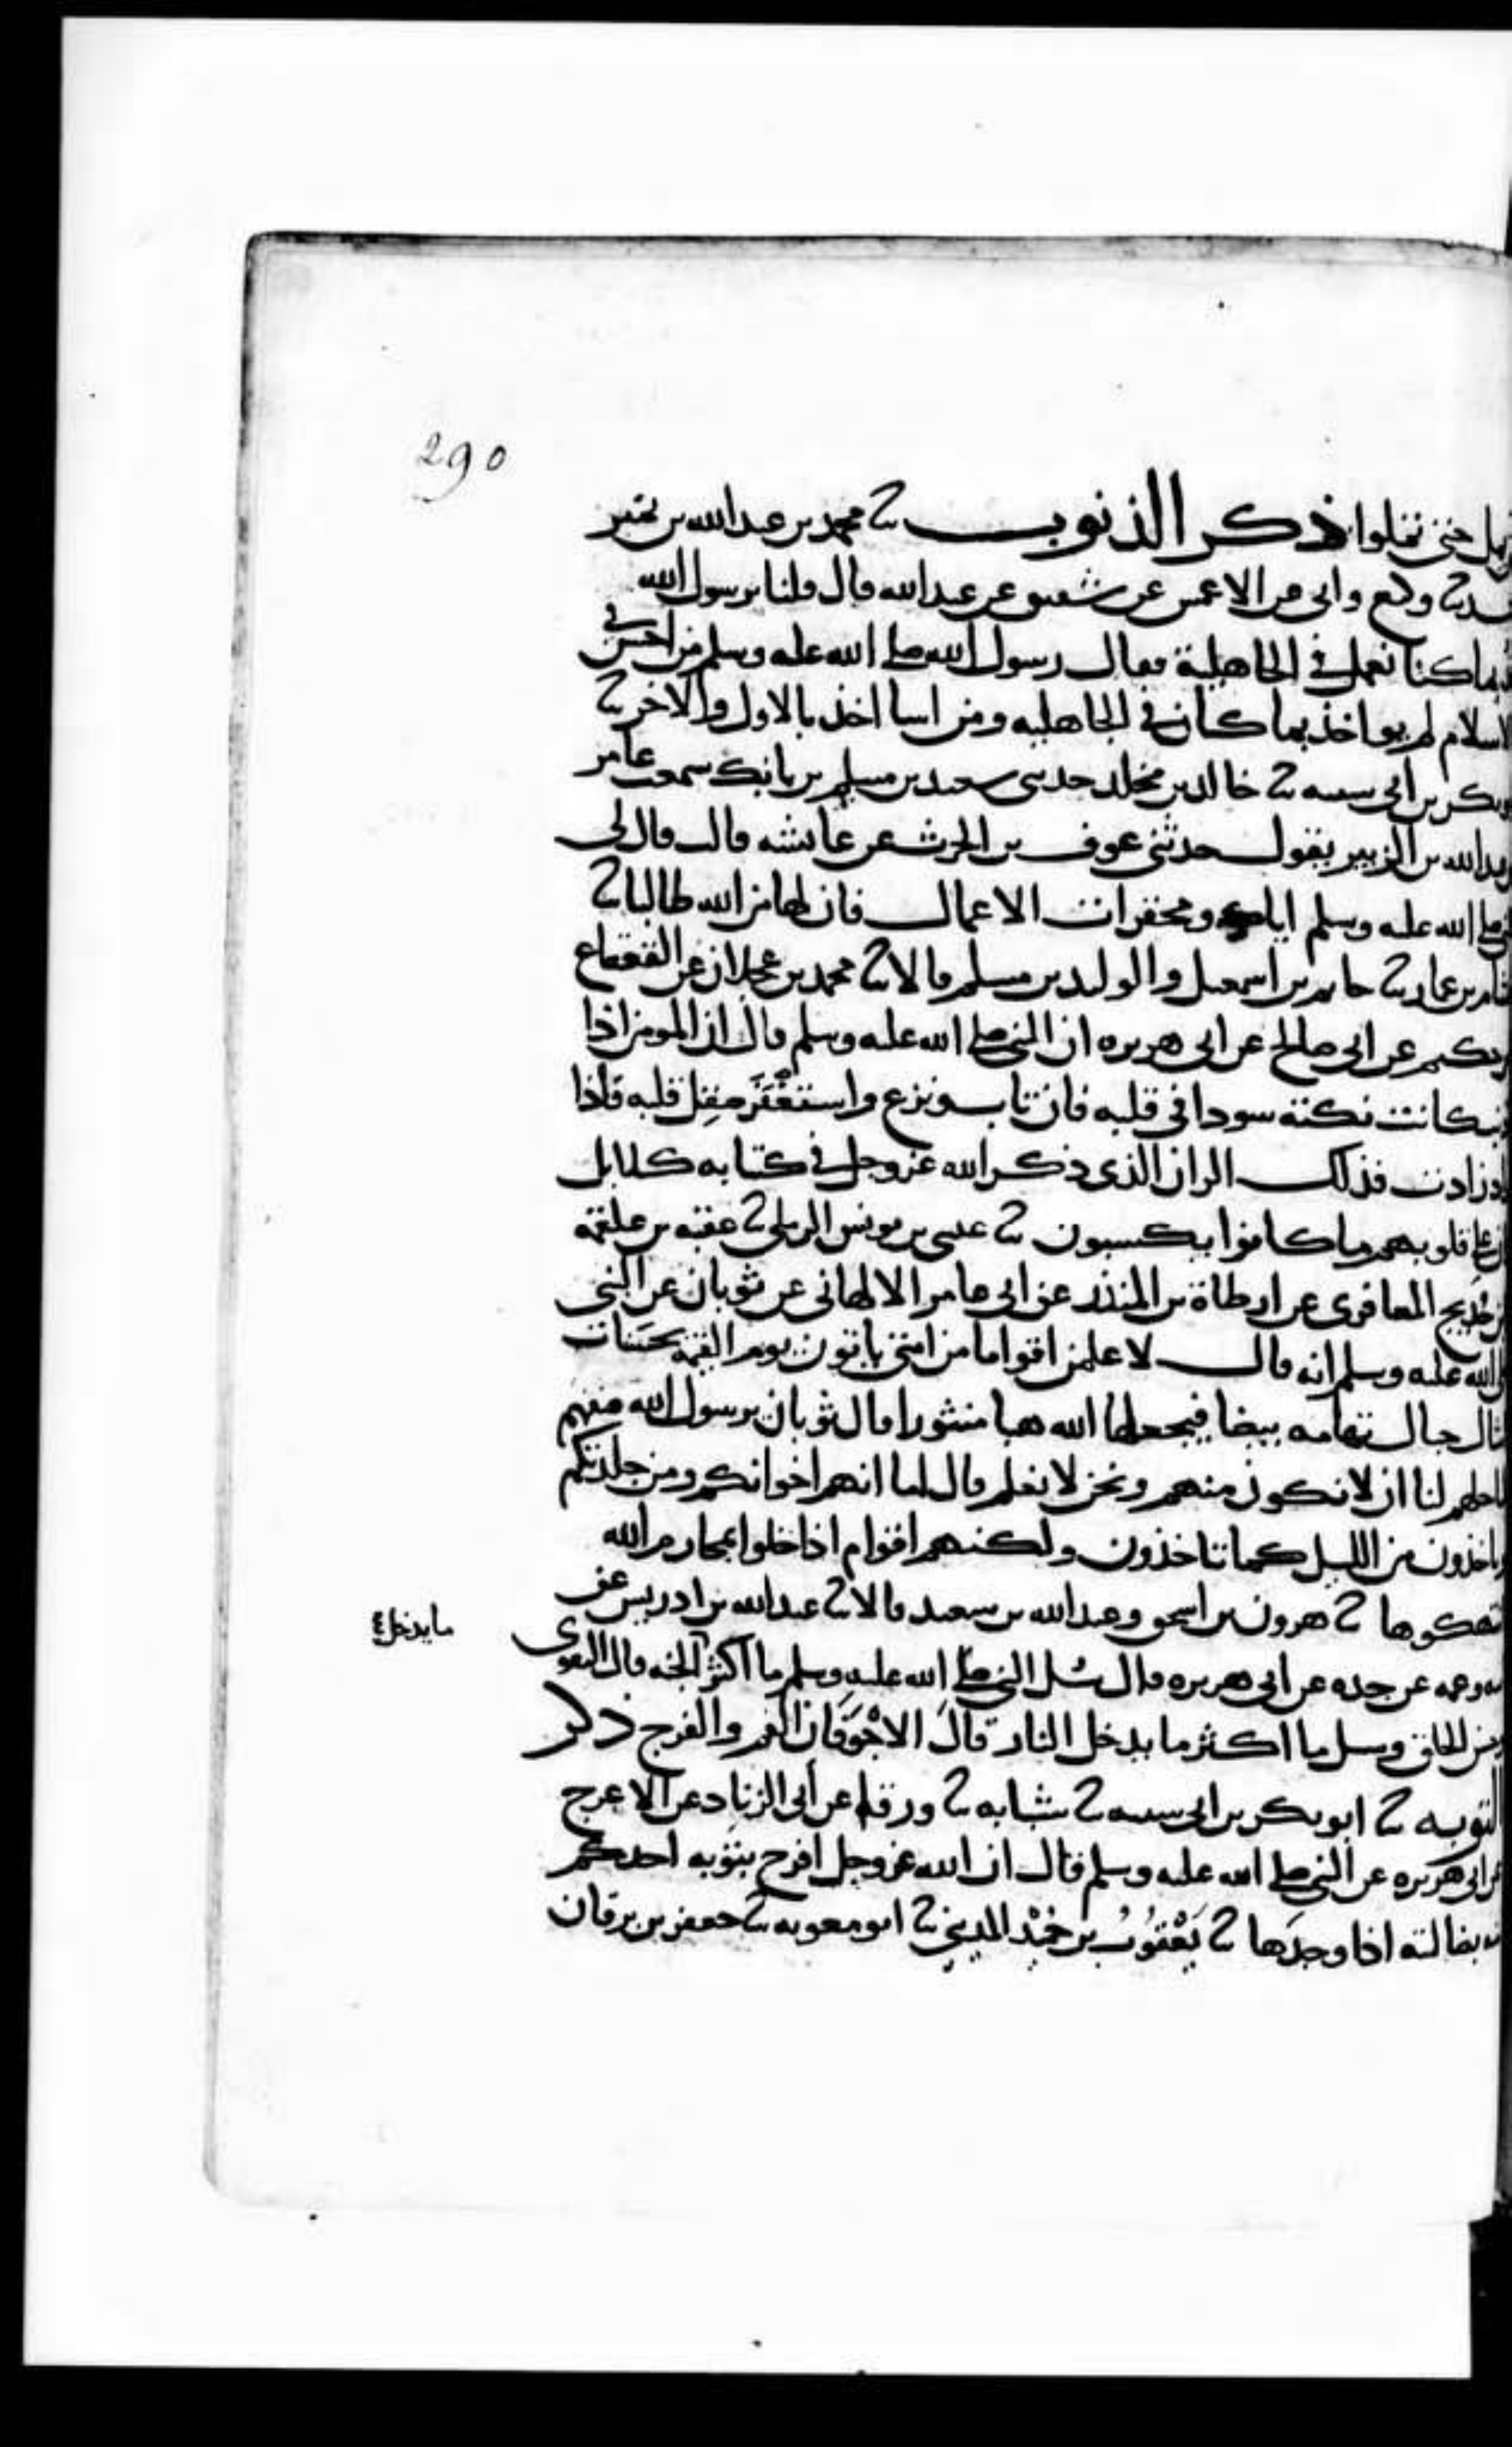 290
يمل حتى تملوا ذكر الذنوب ثنا محمد بن عبد الله بن نمير
ثنا وكيع وابى عن الاعمش عن شقيق عن عبد الله قال قلنا يرسول الله
بما كنا نعمل في الجاهلية فقال رسول الله صلى الله عليه وسلم من احسن في
الاسلام لم يواخذ بما كان في الجاهليه ومن اسا اخذ بالاول والاخر ثنا
بكر بن ابى سيبه ثنا خالد بن مخلد حدثنى سعيد بن مسلم بن بانك سمعت عامر
عبد الله بن الزبير يقول حدثنى عوف بن الحرث عن عايشه قالت قال لى
صلى الله عليه وسلم اياك ومحقرات الاعمال فان لها من الله طالبا ثنا
بن عمار ثنا حاتم بن اسمعيل والوليد بن مسلم قالا ثنا محمد بن عجلان عن القعقاع
حكيم عن ابى صالح عن ابى هريره ان النبى صلى الله عليه وسلم قال ان المومن اذا
كانت نكتة سودا في قلبه فان تاب ونزع واستغفر صقل قلبه فاذا
زادت فذلك الران الذى ذكر الله عز وجل في كتابه كلا بل
على قلوبهم ما كانوا يكسبون ثنا عيسى بن يونس الرملى ثنا عقبه بن علقمه
خديج المعافرى عن ارطاة بن المنذر عن ابى عامر الالهانى عن ثوبان عن النبى
الله عليه وسلم انه قال لاعلمن اقواما من امتى ياتون يوم القيمة بحسنات
جبال تهامه بيضا فيجعلها الله هبا منثورا قال ثوبان يرسول الله صفهم
جلهم لنا ان لا نكون منهم ونحن لا نعلم قال اما انهم اخوانكم ومن جلدتكم
ياخذون من الليل كما تاخذون ولكنهم اقوام اذا خلوا بمحارم الله
انتهكوها ثنا هرون بن اسحق وعبد الله بن سعيد قالا ثنا عبد الله بن ادريس عن
وعمه عن جده عن ابى هريره قال سئل النبى صلى الله عليه وسلم ما اكثر الجنه قال التقوى
ما يدخل
حسن الخلق وسئل ما اكثر ما يدخل النار قال الاجوفان الفم والفرج ذكر
التوبه ثنا ابو بكر بن ابى سيبه ثنا شبابه ثنا ورقا عن أبى الزناد عن الاعرج
عن ابى هريره عن النبى صلى الله عليه وسلم قال ان الله عز وجل افرح بتوبه احدكم
بضالته اذا وجدها ثنا يعقوب بن حميد المدينى ثنا ابو معويه ثنا جعفر بن برقان